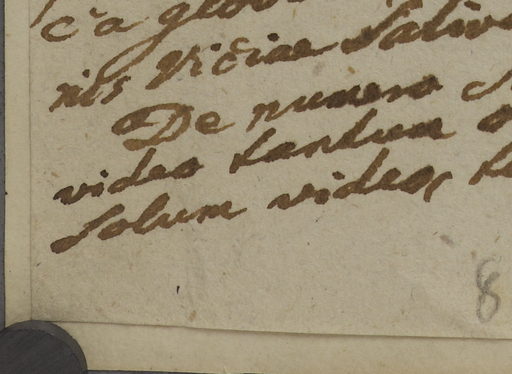 ca glob
nis Viciae Sativ
De numero
video tantum
Solum video,
8